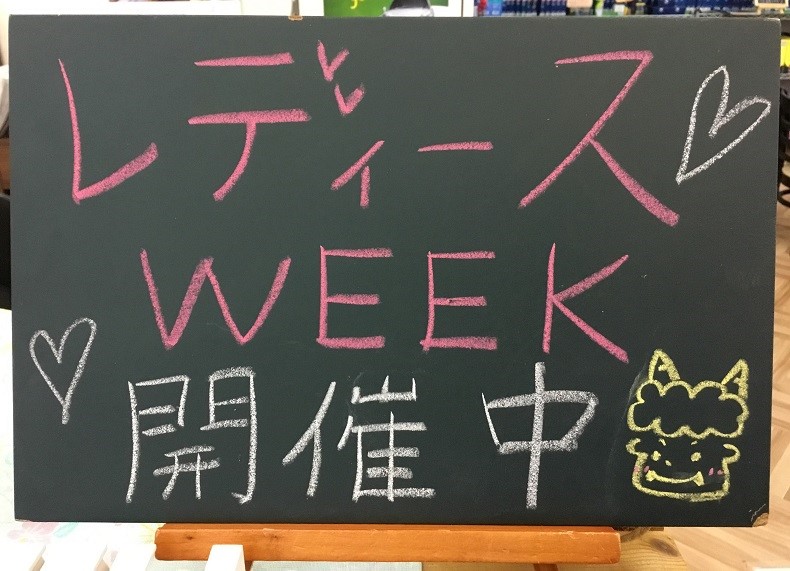 レディース
WEEK
開催中